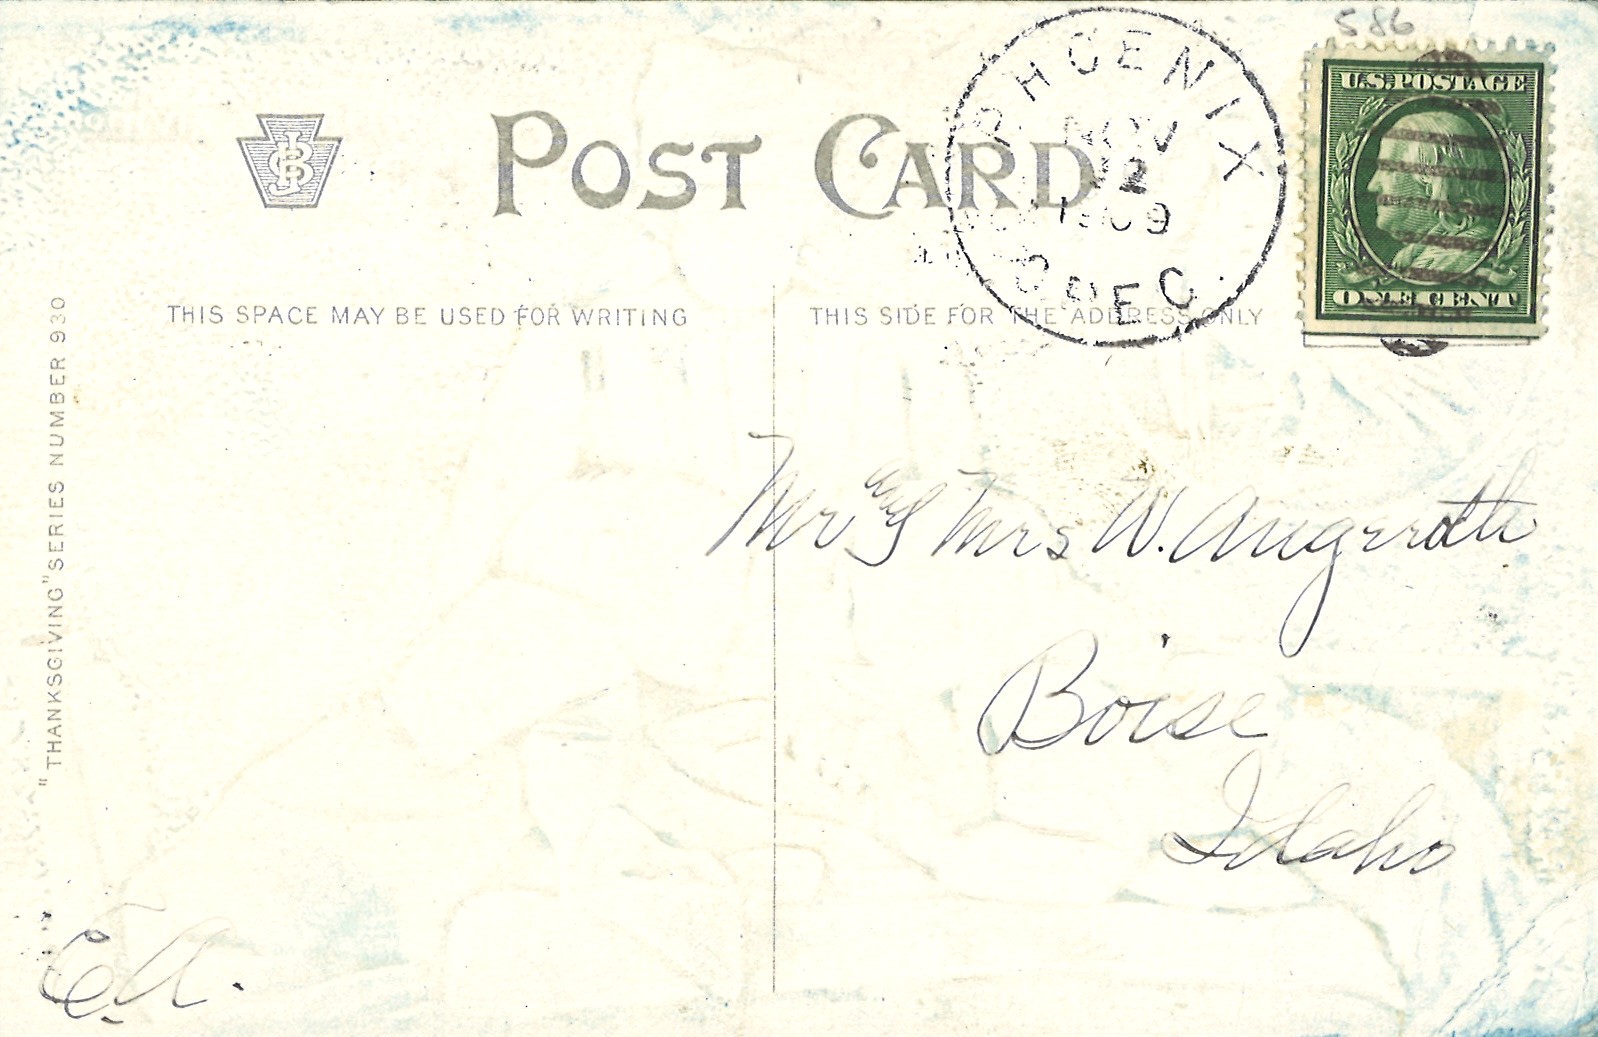 586
U.S. POSTAGE
ONE CENT
PHOENIX
NOV
12
1909
OREG.
POST CARD
THIS SPACE MAY BE USED FOR WRITING
THIS SIDE FOR THE ADDRESS ONLY
"THANKSGIVING" SERIES NUMBER 930
Mr and Mrs W. Angeroth
Boise
Idaho
E.A.